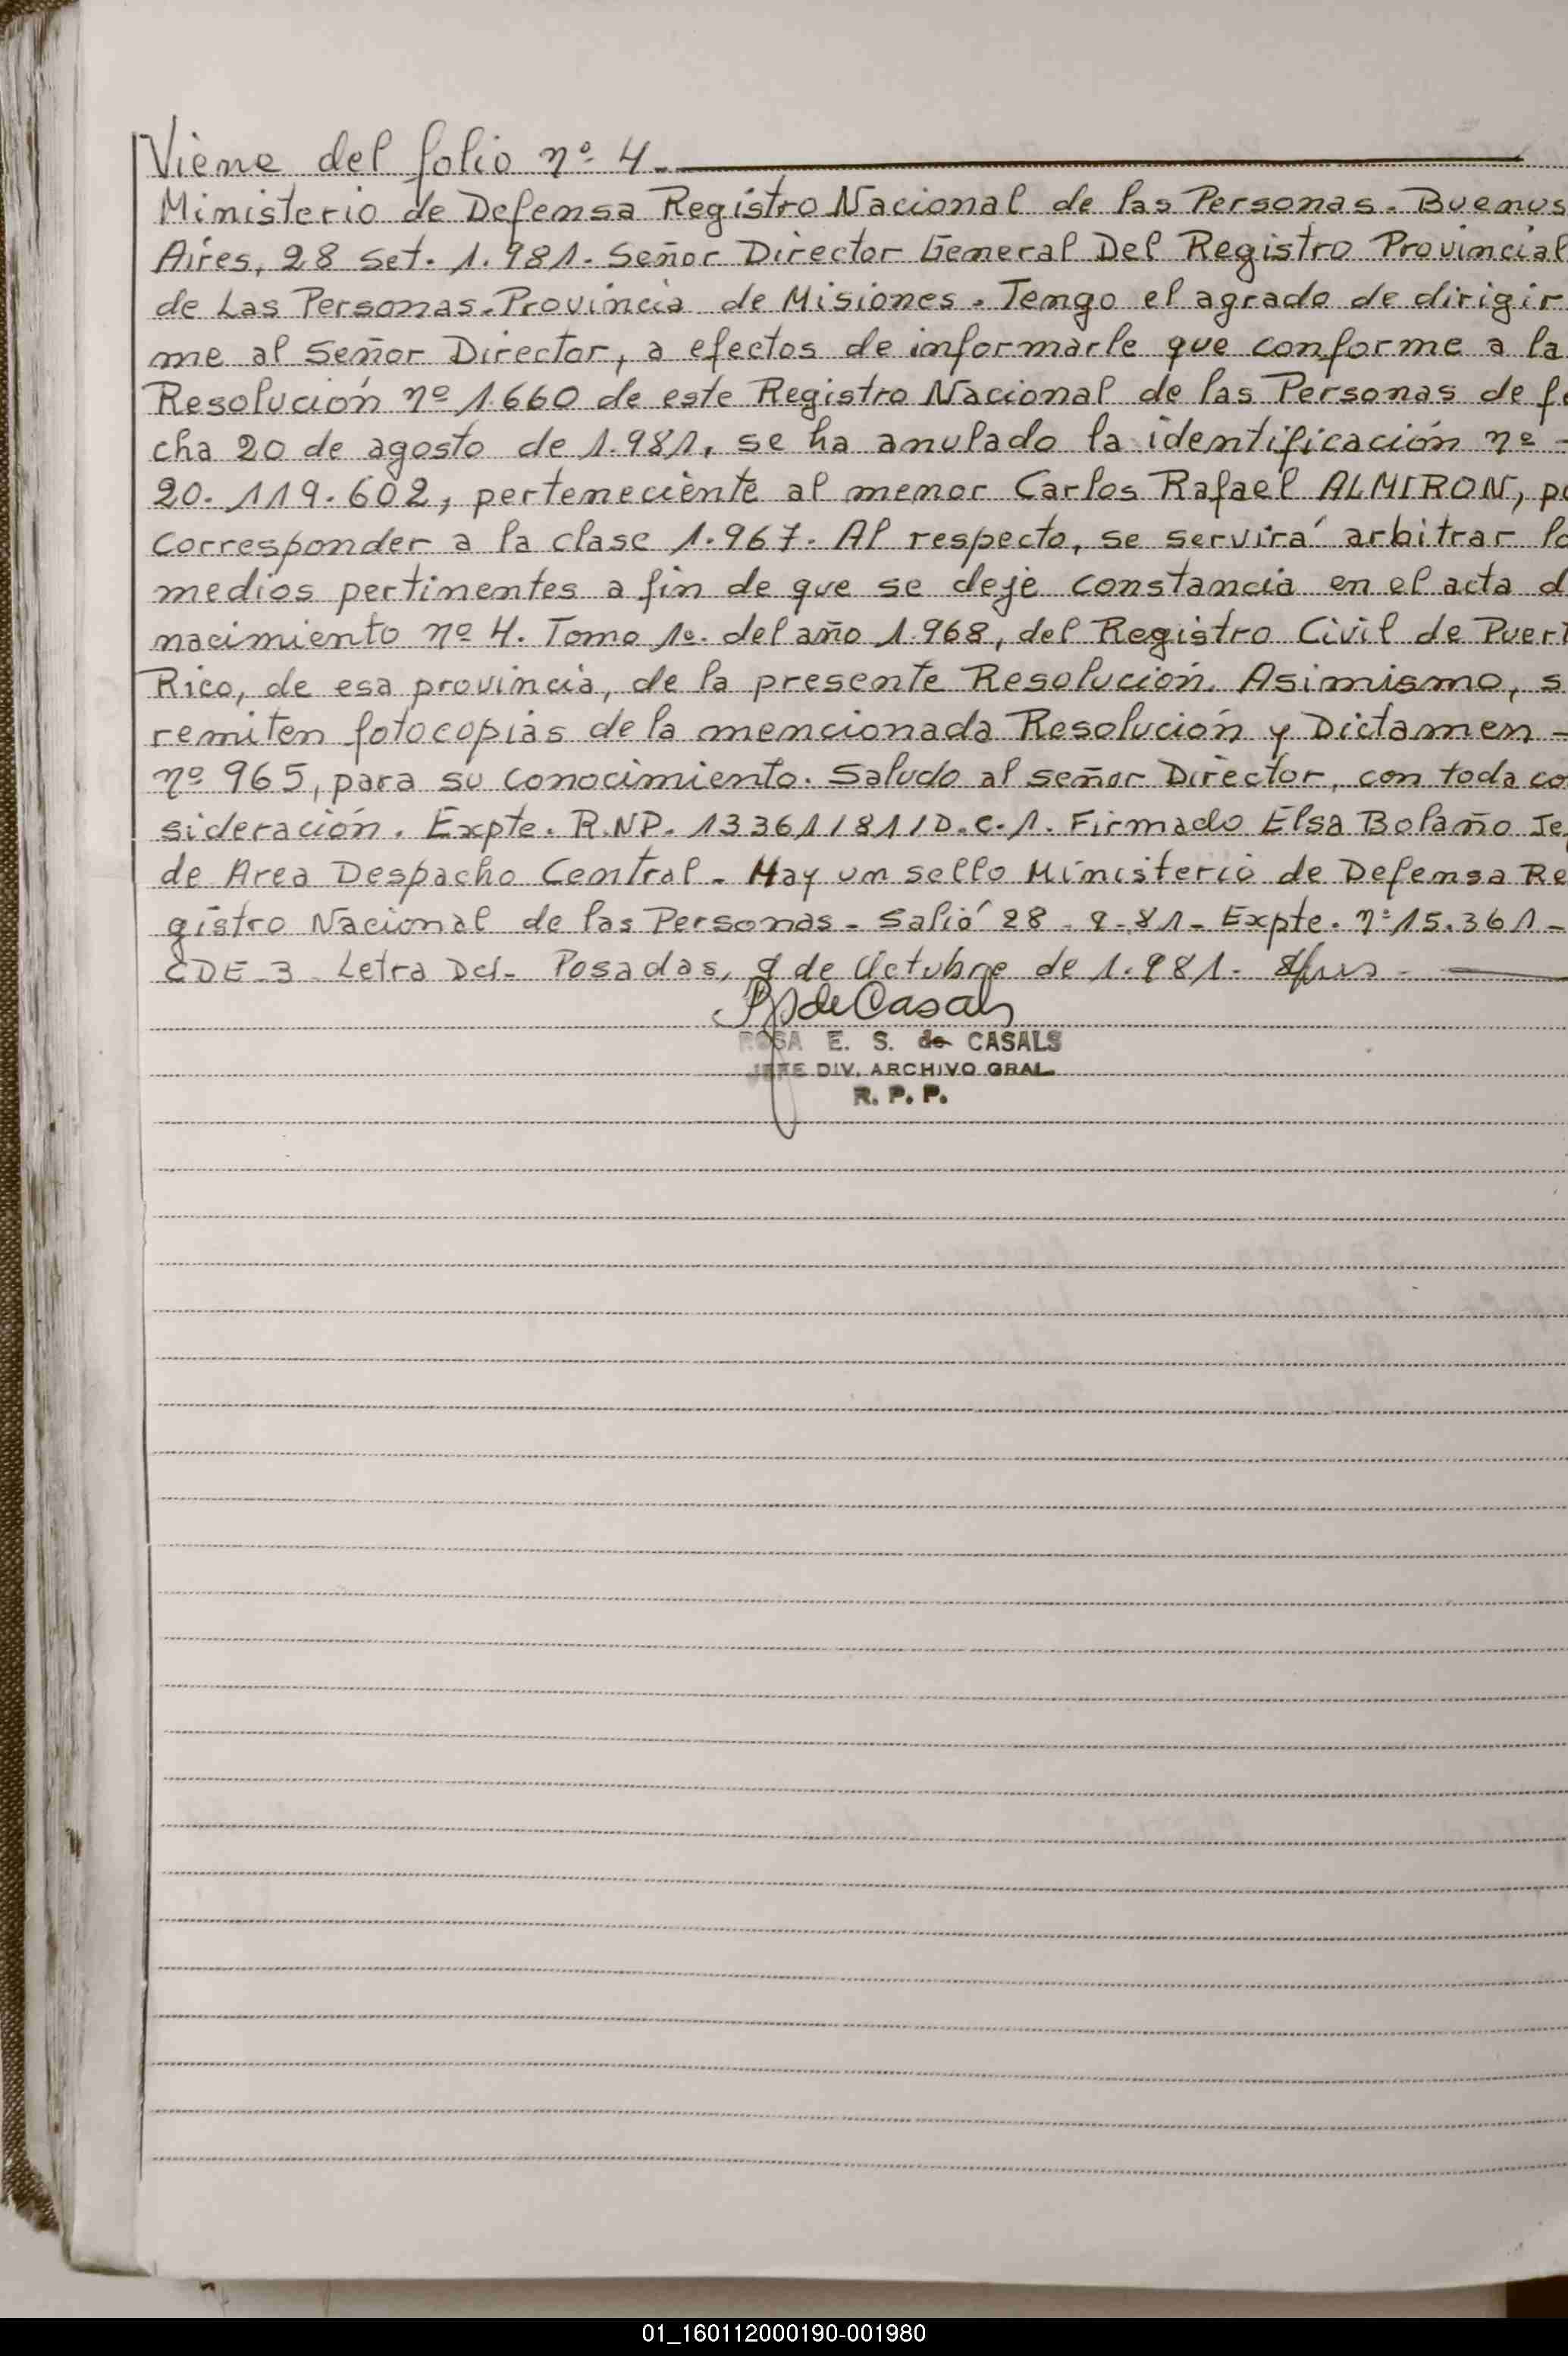 Viene del folio nº 4.
Ministerio de Defensa Registro Nacional de las Personas. Buenos
Aires, 28 Set. 1.981. Señor Director General Del Registro Provincial
de Las Personas. Provincia de Misiones. Tengo el agrado de dirigir
me al Señor Director, a efectos de informarle que conforme a la
Resolución nº 1.660 de este Registro Nacional de las Personas de fe
cha 20 de agosto de 1.981, se ha anulado la identificación nº -
20.119.602, perteneciente al menor Carlos Rafael ALMIRON, po
corresponder a la clase 1.967. Al respecto, se servirá arbitrar lo
medios pertinentes a fin de que se deje constancia en el acta d
nacimiento nº 4. Tomo 1º. del año 1.968, del Registro Civil de Puert
Rico, de esa provincia, de la presente Resolución. Asimismo, s
remiten fotocopias de la mencionada Resolución y Dictamen -
nº 965, para su conocimiento. Saludo al señor Director, con toda co
sideración. Expte. R.NP. 13361/81/D.C.1. Firmado Elsa Bolaño Je
de Area Despacho Central - Hay un sello Mincisterio de Defensa Re
gistro Nacional de las Personas - Salió 28 - 9-81 - Expte. nº 15.361 -
CDE-3 Letra Del- Posadas, 9 de Octubre de 1.981-
de Casals
ROSA E. S. de CASALS
JEFE DIV. ARCHIVO GRAL.
R. P. P.
01_160112000190-001980